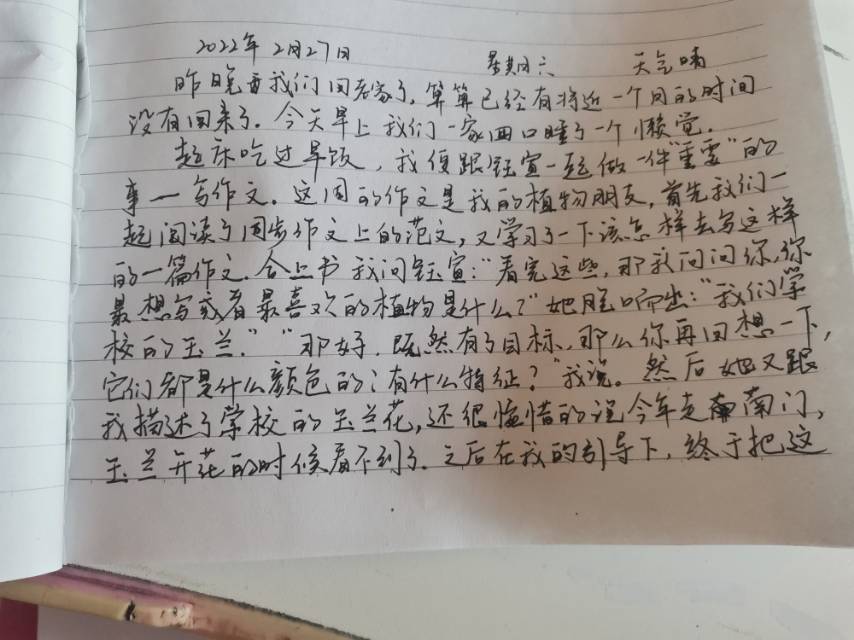 2022年2月27日 星期六 天气晴
昨晚我们回老家了,算算已经有将近一个月的时间
没有回来了。今天早上我们一家四口睡了一个懒觉。
起床吃过早饭,我便跟钰宣一起做一件“重要”的
事一写作文。这周的作文是我的植物朋友,首先我们一
起阅读了同步作文上的范文,又学习了一下该怎样去写这样
的一篇作文。合上书我问钰宣:“看完这些,那我问问你,你
最想写或者最喜欢的植物是什么?”她脱口而出:“我们学
校的玉兰。”“那好,既然有了目标,那么你再回想一下,
它们都是什么颜色的;有什么特征?”我说。然后她又跟
我描述了学校的玉兰花,还很惋惜的说今年走南门,
玉兰开花的时候看不到了。之后在我的引导下,终于把这